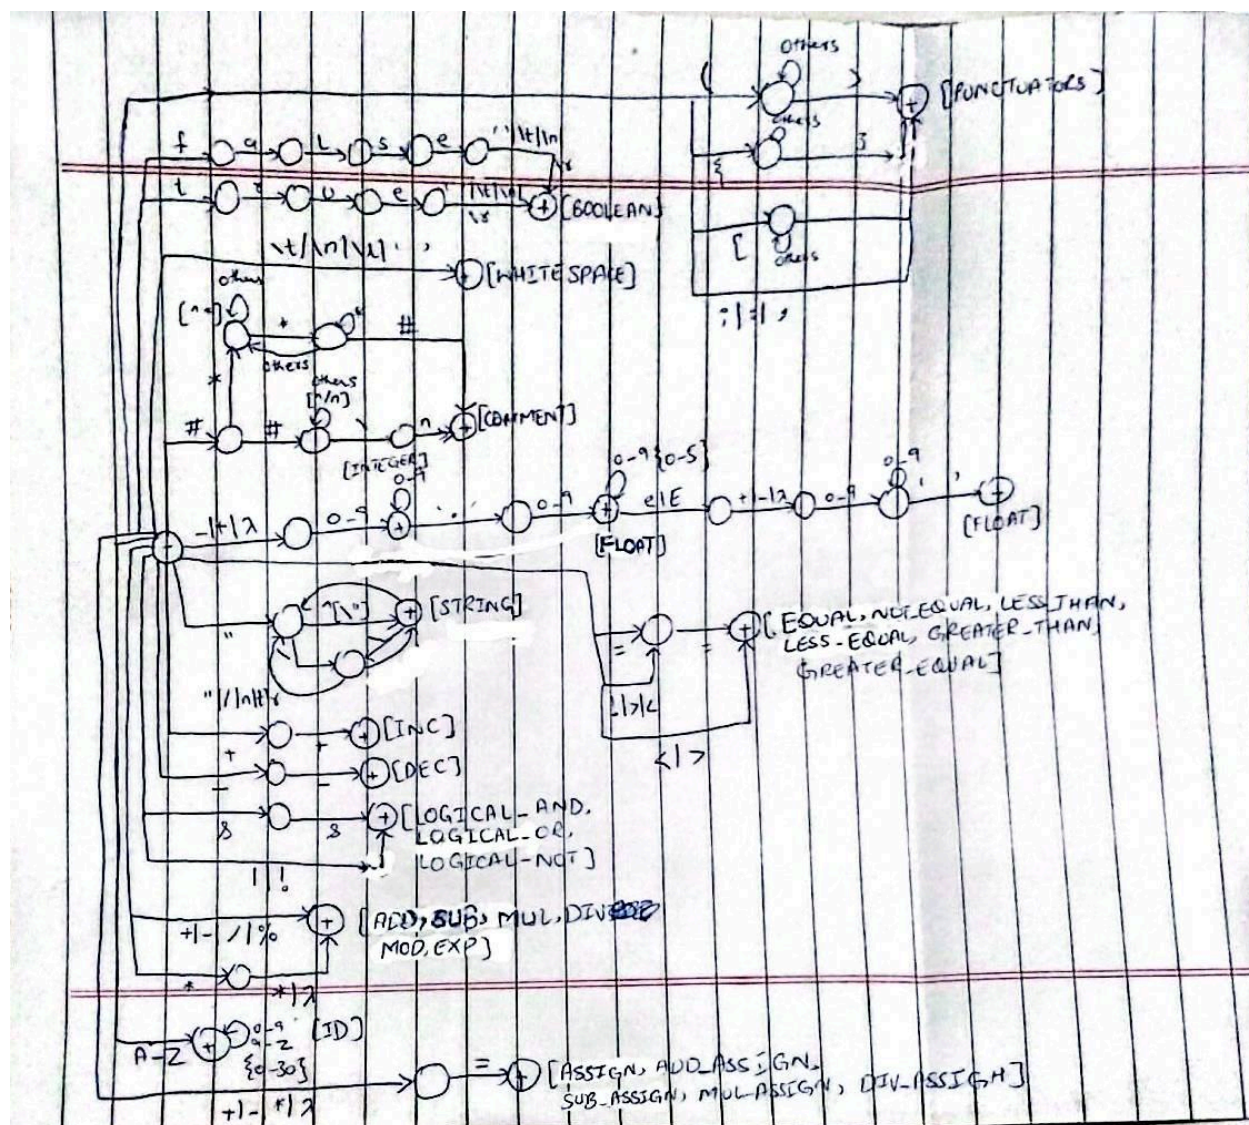 others
( ) + [PUNCTUATORS]
others
{ }
f a l s e ' '/\t/\n
\r
t r u e ' '/\t/\n
\r + [BOOLEAN]
[
others
\t/\n/\r/ ' '
+ [WHITESPACE]
; | : | ,
others
[^*]
* * #
others
*
others
[^\n]
# # \ n + [COMMENT]
[INTEGER]
0-9
0-9 {0-5}
0-9
-|+|λ 0-9 + '.' 0-9 + e|E +|-|λ 0-9 ' ' +
[FLOAT]
[FLOAT]
-
" ^[\"] + [STRING]
\
"|/|n|t|r
= = + [EQUAL, NOT_EQUAL, LESS_THAN,
LESS-EQUAL, GREATER_THAN,
GREATER_EQUAL]
!|>|<
<|>
+ + + [INC]
- - + [DEC]
& & + [LOGICAL_AND,
LOGICAL_OR,
LOGICAL-NOT]
| !
+ [ADD, SUB, MUL, DIV
+|-|/|% MOD, EXP]
* *|λ
A-Z + 0-9 [ID]
a-z
{0-30}
+|-|*|λ = + [ASSIGN, ADD_ASSIGN,
SUB_ASSIGN, MUL_ASSIGN, DIV_ASSIGN]